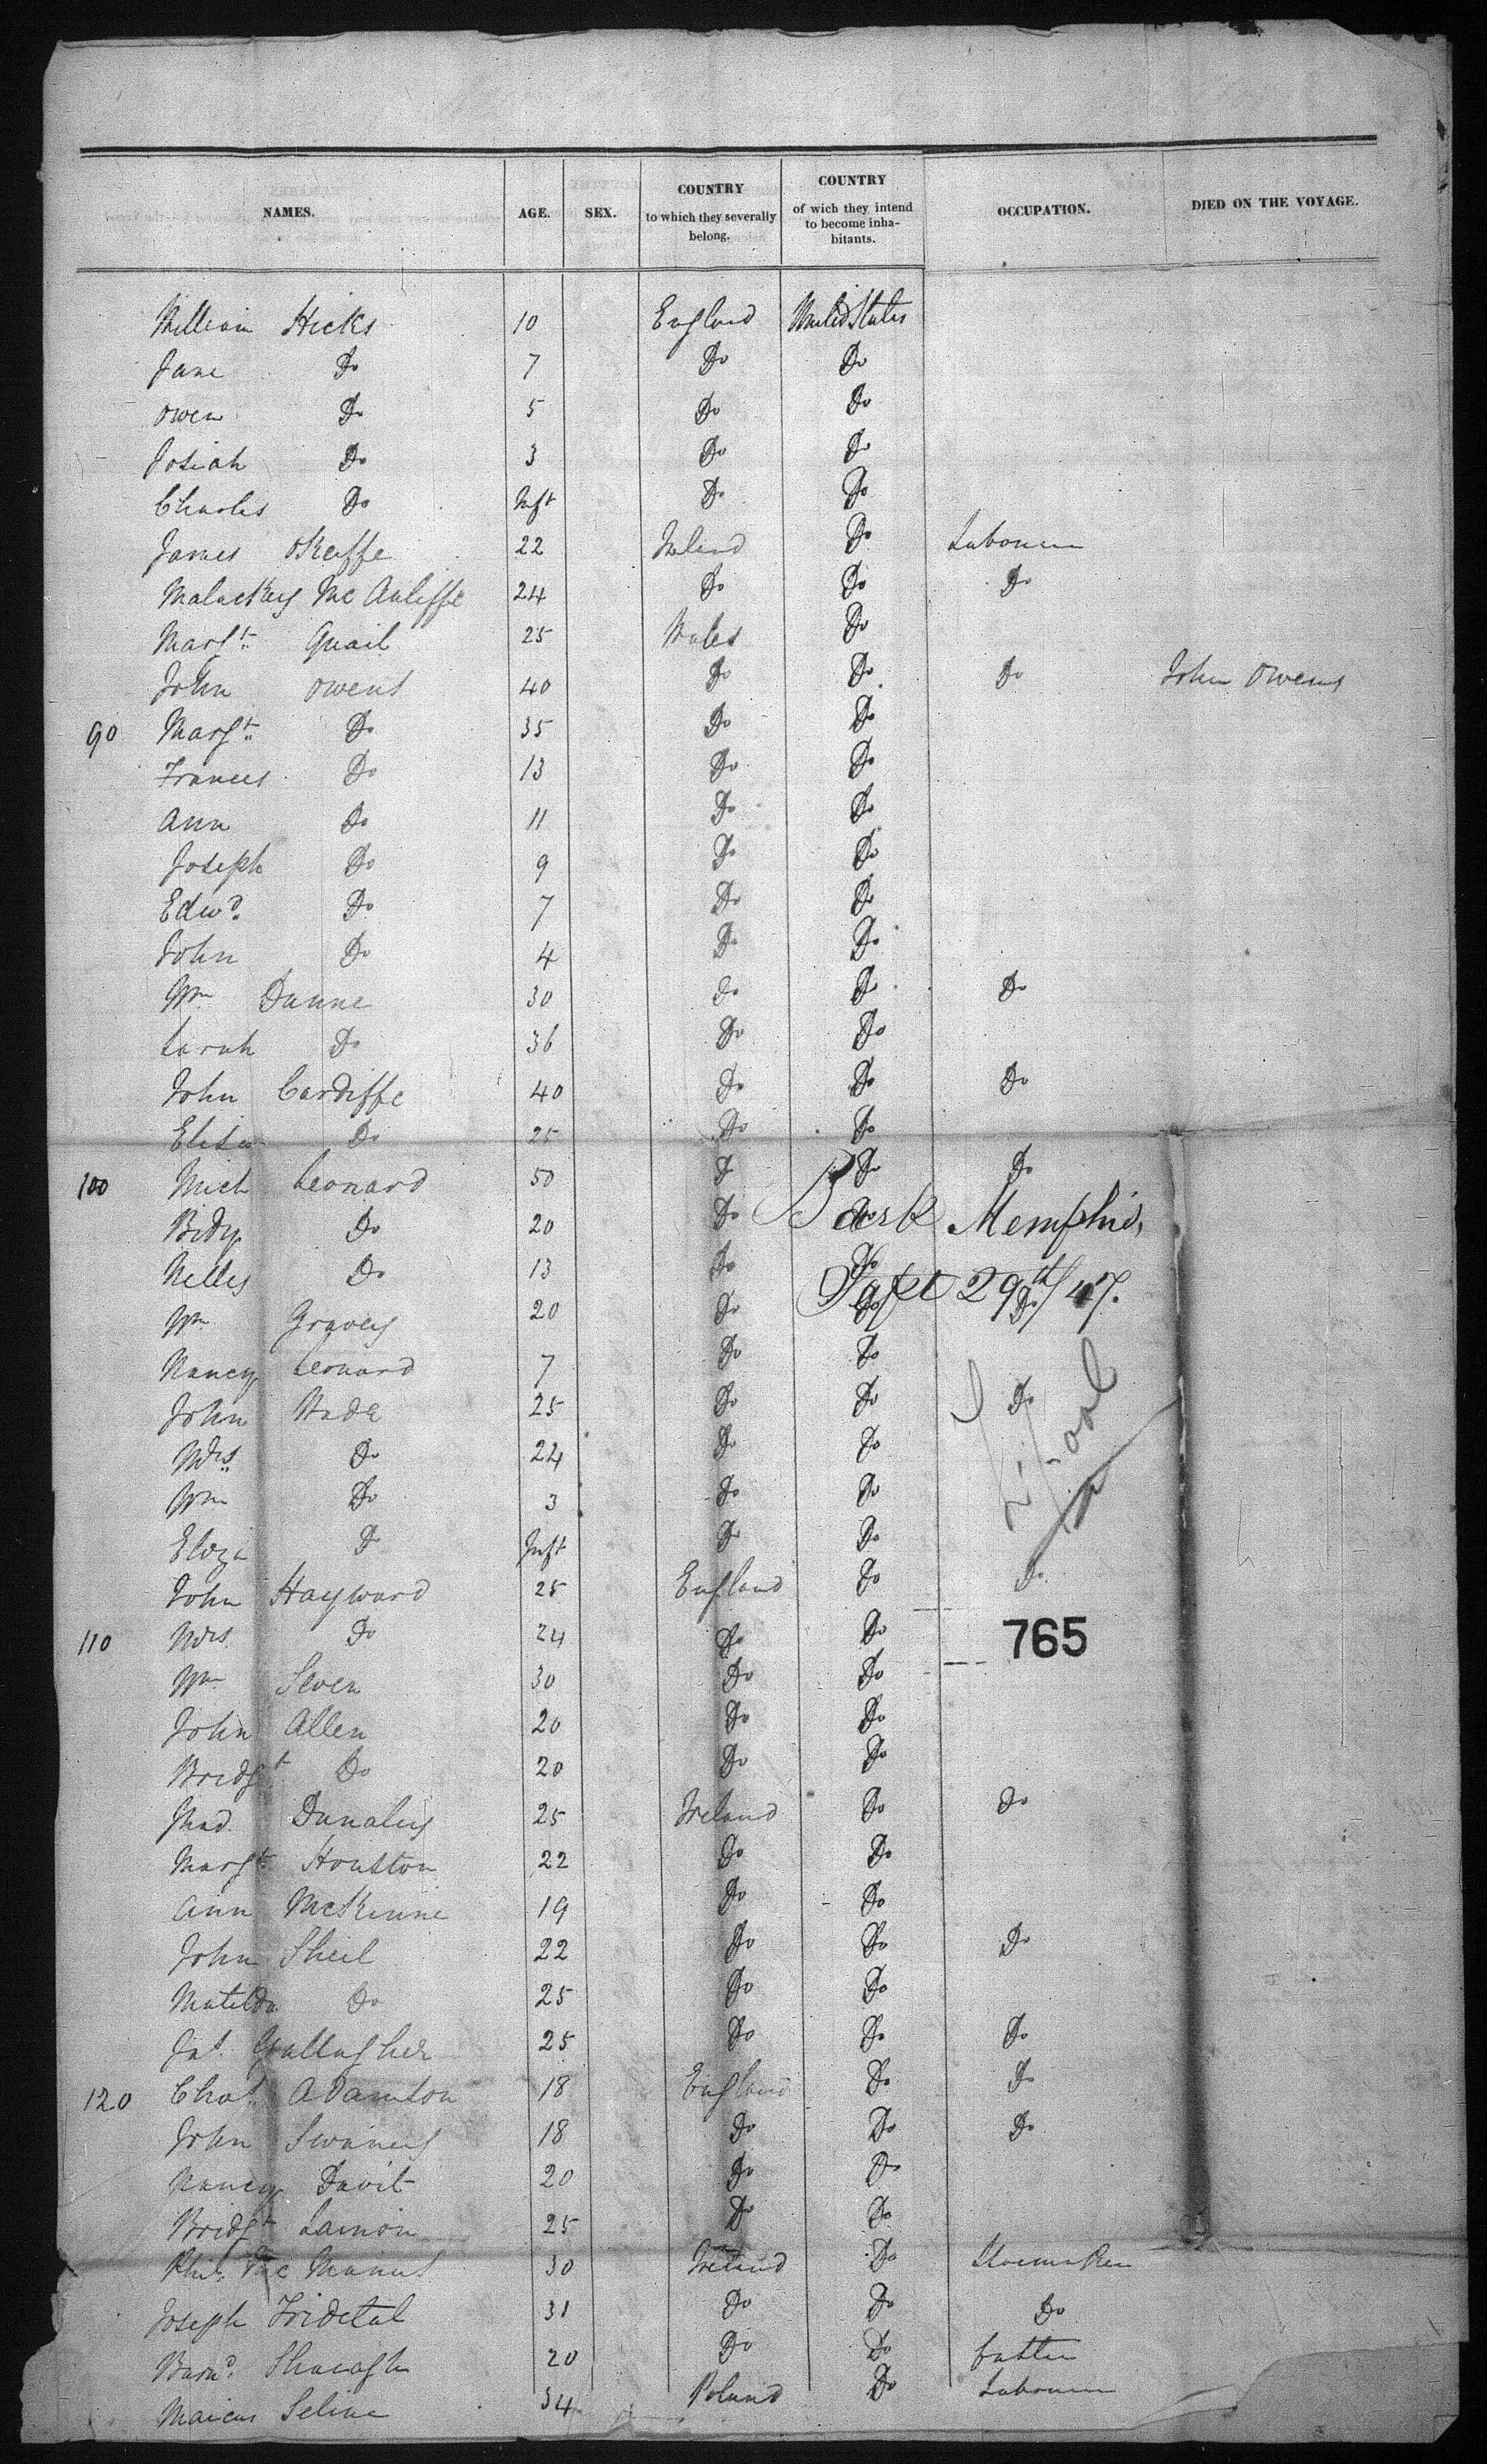 NAMES. AGE. SEX. COUNTRY to which they severally belong. COUNTRY of wich they intend to become inha-bitants. OCCUPATION. DIED ON THE VOYAGE.
William Hicks 10 England United States
Jane Do 7 Do Do
Owen Do 5 Do Do
Josiah Do 3 Do Do
Charles Do Inft Do Do
James OKeaffe 22 Ireland Do Labourer
Malackey Mc Auliffe 24 Do Do Do
Margt. Quail 25 Wales Do
John Owens 40 Do Do Do John Owens
90 Margt. Do 35 Do Do
Frances Do 13 Do Do
Ann Do 11 Do Do
Joseph Do 9 Do Do
Edwd. Do 7 Do Do
John Do 4 Do Do
Wm Dunne 30 Do Do Do
Sarah Do 36 Do Do
John Cardiffe 40 Do Do Do
Eliza Do 25 Do Do
100 Mich Leonard 50 Do Do Do
Bidy Do 20 Do Do
Bark Memphis,
Nelley Do 13 Do Do
Sept 29th/47.
Wm Graves 20 Do Do Do
Nancy Leonard 7 Do Do
John Wade 25 Do Do Do
Mrs. Do 24 Do Do
L'pool
Wm Do 3 Do Do
Eliza Do Inft Do Do
John Hayward 25 England Do Do
110 Mrs. Do 24 Do Do
765
Wm Seven 30 Do Do
John Allen 20 Do Do
Bridgt Do 20 Do Do
25 Ireland Do Do
Margt. Houston 22 Do Do
Ann McKenne 19 Do Do
John Sheil 22 Do Do Do
Matilda Do 25 Do Do
Jas. Gallagher 25 Do Do Do
120 Chas. Adamson 18 England Do Do
John Swaney 18 Do Do Do
Nancy Davis 20 Do Do
Bridgt 25 Do Do
Phil. Mc Manus 30 Ireland Do Shoemaker
Joseph 31 Do Do Do
Barnd. 20 Do Do
Marcus Seline 34 Poland Do Labourer